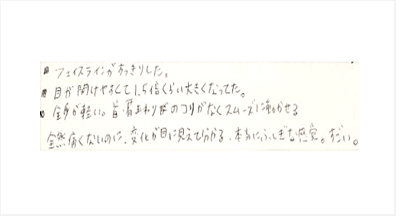 フェイスラインがすっきりした。
目が開けやすくて1.5倍くらい大きくなってた。
全身が軽い。首・肩まわりがのコリがなくスムーズに動かせる
全然痛くないのに、変化が目に見えて分かる、本当にふしぎな感覚。すごい。